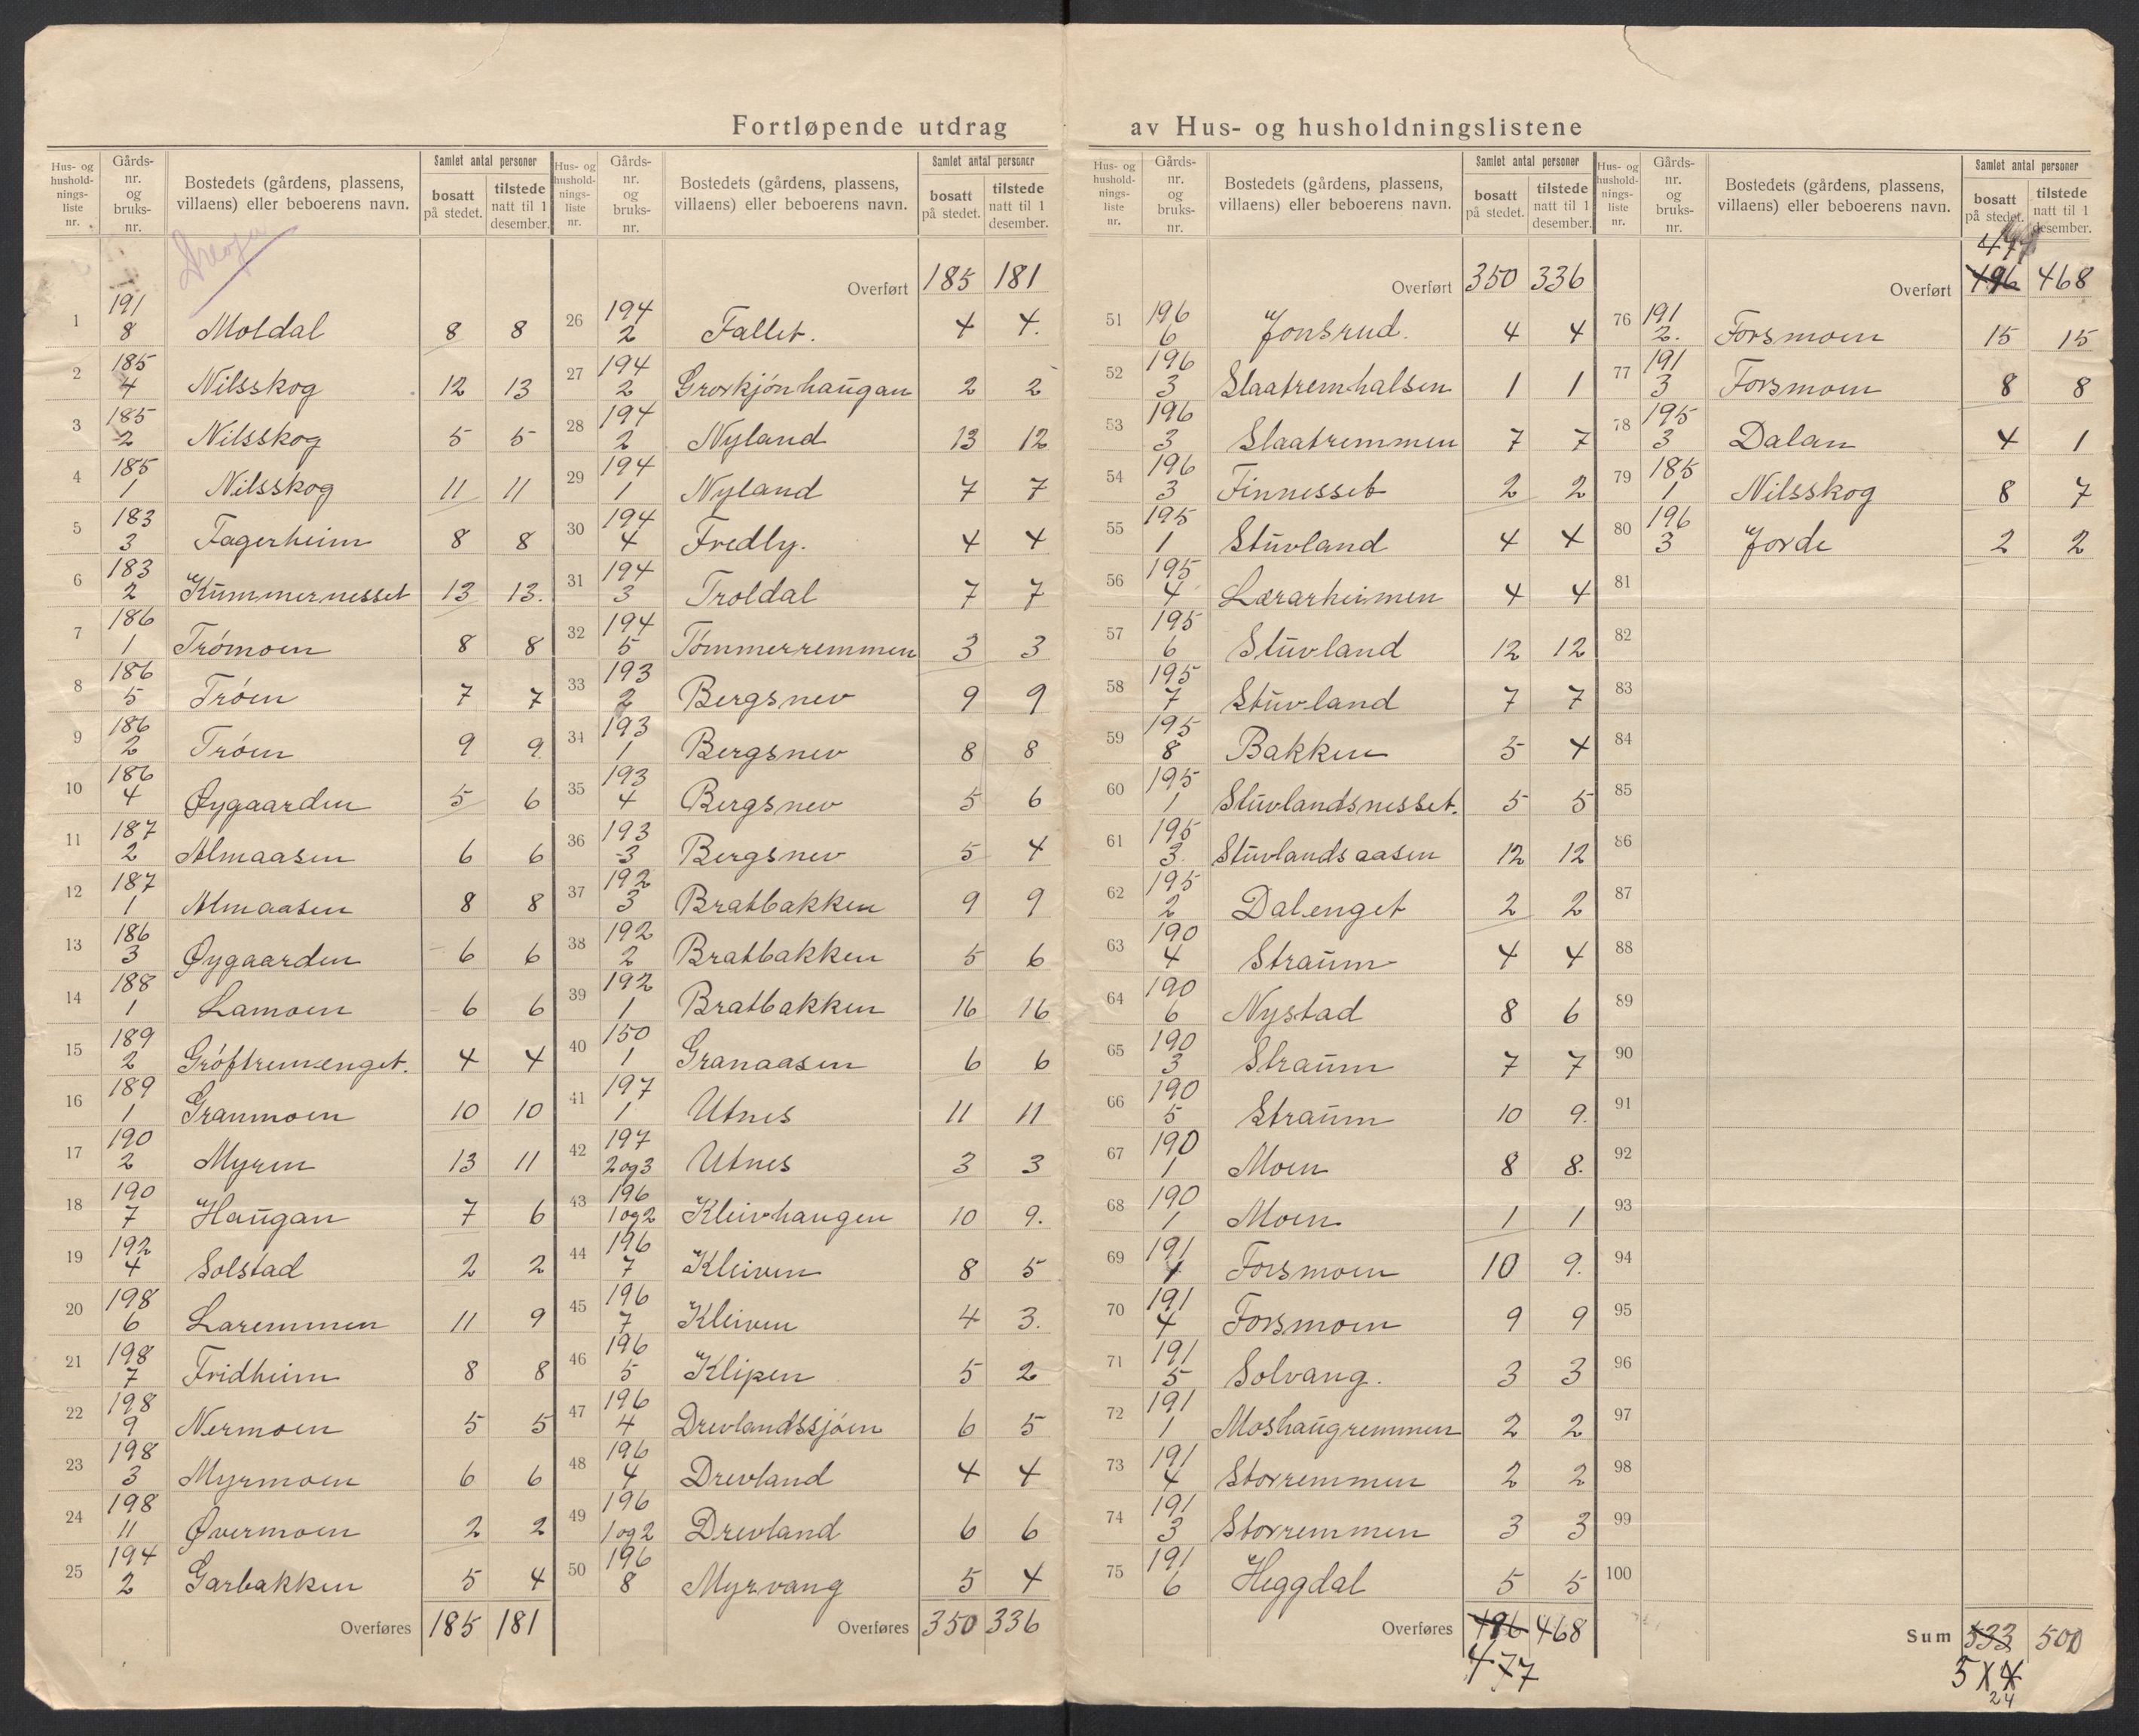 Fortløpende utdrag av Hus- og husholdningslistene
Hus- og husholdnings-liste nr. | Gårds-nr. og bruks-nr. | Bostedets (gårdens, plassens, villaens) eller beboerens navn. | Samlet antal personer | bosatt på stedet. | tilstede natt til 1 desember.
1 191/8 Moldal 8 8
2 185/4 Nilsskog 12 13
3 185/2 Nilsskog 5 5
4 185/1 Nilsskog 11 11
5 183/3 Fagerheim 8 8
6 183/2 Kummernesset 13 13.
7 186/1 Trómoen 8 8
8 186/5 Tróen 7 7
9 186/2 Tróen 9 9
10 186/4 Øygaarden 5 6
11 187/2 Almaasen 6 6
12 187/1 Almaasen 8 8
13 186/3 Øygaarden 6 6
14 188/1 Lamoen 6 6
15 189/2 Gróftremenget. 4 4
16 189/1 Granmoen 10 10
17 190/2 Myren 13 11
18 190/7 Haugan 7 6
19 192/4 Solstad 2 2
20 198/6 Laremmen 11 9
21 198/7 Fridheim 8 8
22 198/9 Nermoen 5 5
23 198/3 Myrmoen 6 6
24 198/11 Øvermoen 2 2
25 194/2 Garbakken 5 4
Overføres 185 181
Hus- og husholdnings-liste nr. | Gårds-nr. og bruks-nr. | Bostedets (gårdens, plassens, villaens) eller beboerens navn. | Samlet antal personer | bosatt på stedet. | tilstede natt til 1 desember.
Overført 185 181
26 194/2 Fallet. 4 4.
27 194/2 Grovkjónhaugan 2 2
28 194/2 Nyland 13 12
29 194/1 Nyland 7 7
30 194/4 Fredly. 4 4
31 194/3 Troldal 7 7
32 194/5 Tómmerremmen 3 3
33 193/2 Bergsnev 9 9
34 193/1 Bergsnev 8 8
35 193/4 Bergsnev 5 6
36 193/3 Bergsnev 5 4
37 192/3 Bratbakken 9 9
38 192/2 Bratbakken 5 6
39 192/1 Bratbakken 16 16
40 150/1 Granaasen 6 6
41 197/1 Utnes 11 11
42 197/2og3 Utnes 3 3
43 196/1og2 Kleivhaugen 10 9.
44 196/7 Kleiven 8 5
45 196/7 Kleiven 4 3.
46 196/5 Klipen 5 2
47 196/4 Drevlandssjóen 6 5
48 196/4 Drevland 4 4
49 196/1og2 Drevland 6 6
50 196/8 Myrvang 5 4
Overføres 350 336
Hus- og husholdnings-liste nr. | Gårds-nr. og bruks-nr. | Bostedets (gårdens, plassens, villaens) eller beboerens navn. | Samlet antal personer | bosatt på stedet. | tilstede natt til 1 desember.
Overført 350 336
51 196/6 Jonsrud. 4 4
52 196/3 Slaatremhalsen 1 1
53 196/3 Slaatremmen 7 7
54 196/3 Finnesset 2 2
55 195/1 Stuvland 4 4
56 195/4 Lærarheimen 4 4
57 195/6 Stuvland 12 12
58 195/7 Stuvland 7 7
59 195/8 Bakken 5 4
60 195/1 Stuvlandsnesset. 5 5
61 195/3. Stuvlandsaasen 12 12
62 195/2 Dalenget 2 2
63 190/4 Straum 4 4
64 190/6 Nystad 8 6
65 190/3 Straum 7 7
66 190/5 Straum 10 9.
67 190/1 Moen 8 8.
68 190/1 Moen 1 1
69 191/1 Forsmoen 10 9.
70 191/4 Forsmoen 9 9
71 191/5 Solvang. 3 3
72 191/1 Moshaugremmen 2 2
73 191/4 Storremmen 2 2
74 191/3 Storremmen 3 3
75 191/6 Heggdal 5 5
Overføres 496 468
477
Hus- og husholdnings-liste nr. | Gårds-nr. og bruks-nr. | Bostedets (gårdens, plassens, villaens) eller beboerens navn. | Samlet antal personer | bosatt på stedet. | tilstede natt til 1 desember.
477
Overført 496 468
76 191/2. Forsmoen 15 15
77 191/3 Forsmoen 8 8
78 195/3 Dalan 4 1
79 185/1 Nilsskog 8 7
80 196/3 Jorde 2 2
81
82
83
84
85
86
87
88
89
90
91
92
93
94
95
96
97
98
99
100
Sum 533 500
514
24